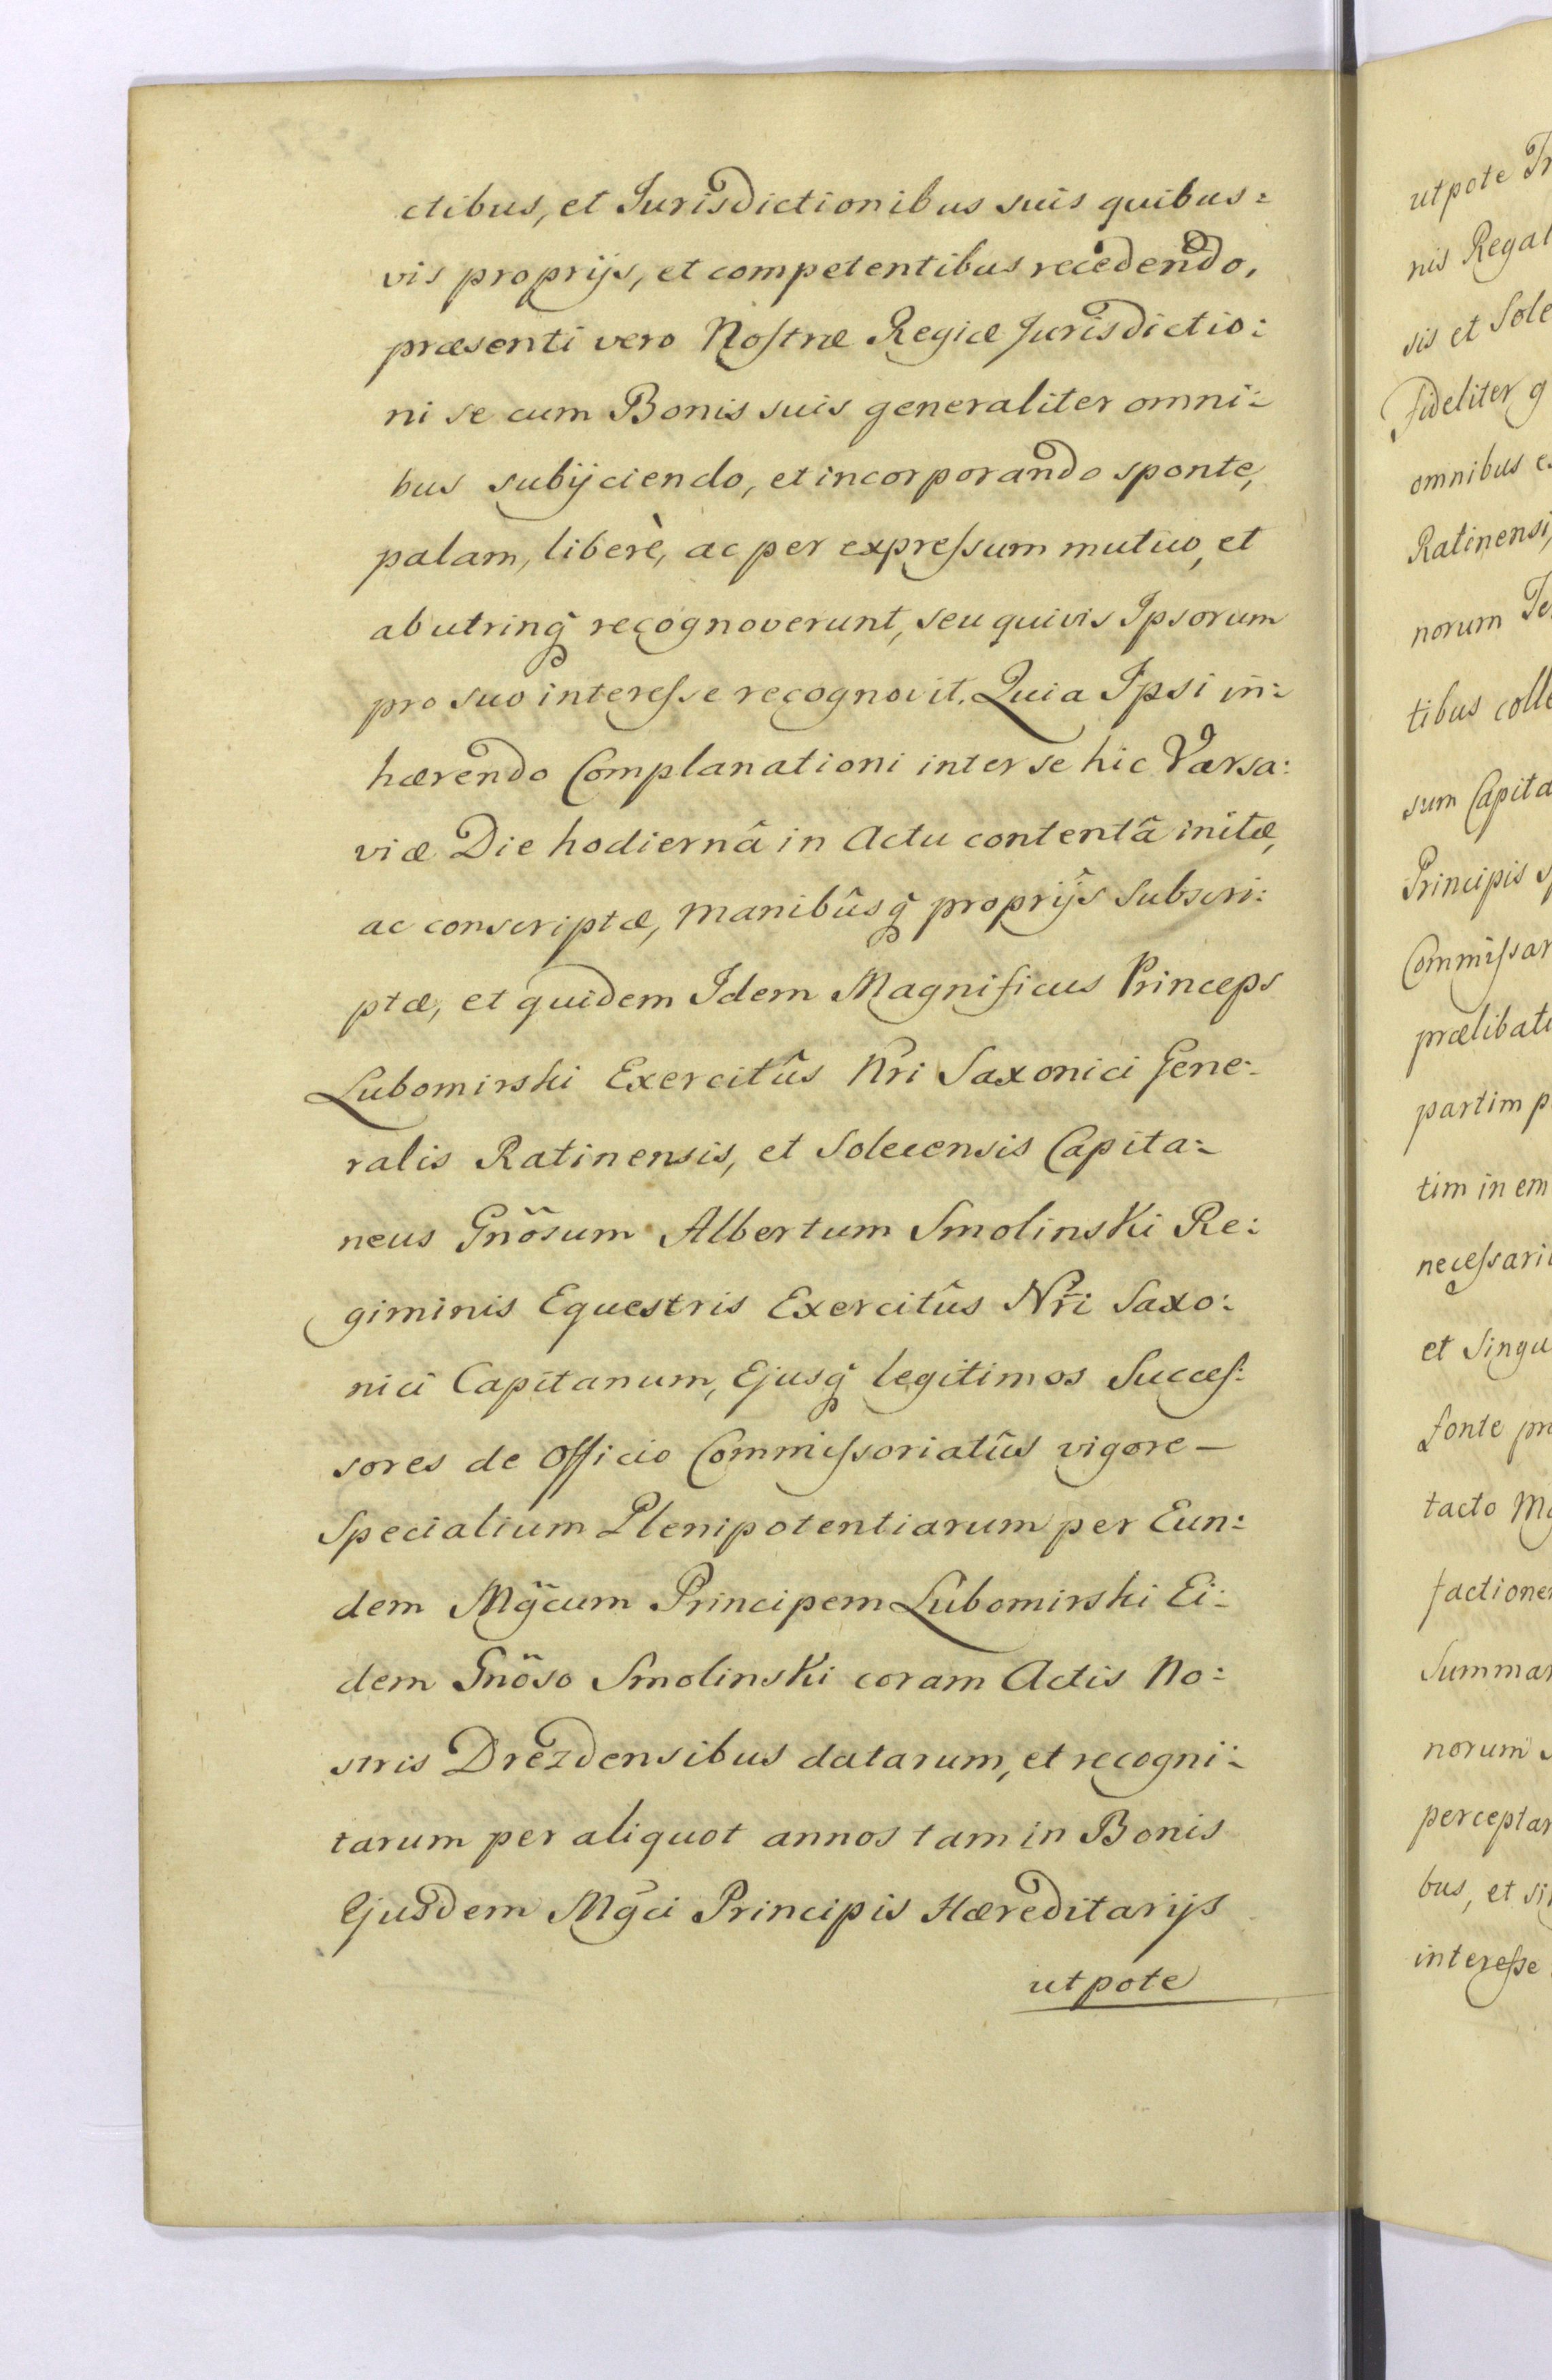 ctibus, et Jurisdictionibus suis quibus=
vis proprijs, et competentibus recedendo,
præsenti vero Nostræ Regiæ Jurisdictio=
ni se cum Bonis suis generaliter omni=
bus subijciendo, et incorporando sponte,
palam, liberè, ac per expressum mutuo, et
ab utrinq̃ recognoverunt, seu quivis Ipsorum
pro suo interesse recognovit. Quia Ipsi in=
hærendo Complanationi inter se hic Varsa=
viæ Die hodiernâ in Actu contentâ initæ,
ac conscriptæ, manibûsq̃ proprijs subscri=
ptæ, et quidem Idem Magnificus Princeps
Lubomirski Exercitûs Nri Saxonici Gene=
ralis Ratinensis, et Solecensis Capita=
neus Gnõsum Albertum Smolinski Re=
giminis Equestris Exercitûs Nr̃i Saxo=
nici Capitanum, Ejusq̃ legitimos Succes=
sores de Officio Commissoriatûs vigore –
Specialium Plenipotentiarum per Eun=
dem Mg̃cum Principem Lubomirski Ei=
dem Gnõso Smolinski coram Actis No=
stris Drezdensibus datarum, et recogni=
tarum per aliquot annos tam in Bonis
Ejusdem Mg̃ci Principis Hæreditarijs
utpote
utpote
nis Regal
sis et Sole
Fideliter g
omnibus
Ratinensi,
norum
tibus colle
sum Capita
Principis
Commissar
prælibat
partim p
tim in em
necessari
et Singu
fonte
tacto
factione
Summar
norum
perceptar
bus, et
interesse